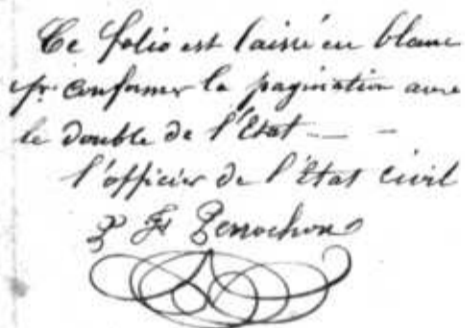 Ce folio est laissé en blanc
pr. conformer la pagination avec
le double de l'Etat — —
l'officier de l'Etat civil
Perrochon